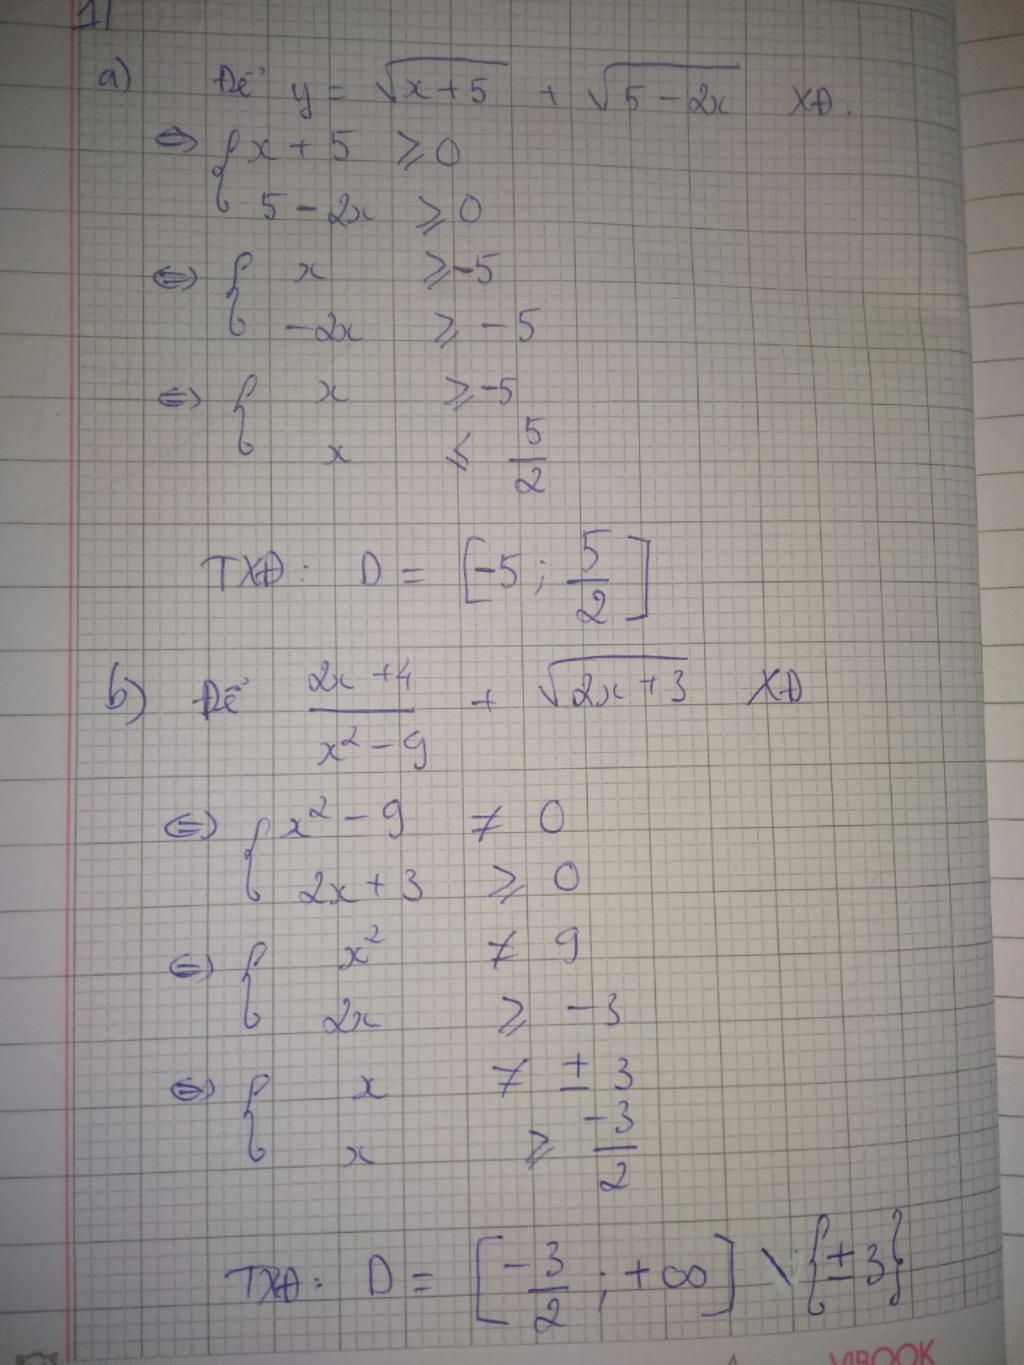 1)
a) Để y = √(x+5) + √(5-2x) XĐ.
⇔ { x + 5 ⩾ 0
5 - 2x ⩾ 0
⇔ { x ⩾ -5
-2x ⩾ -5
⇔ { x ⩾ -5
x ⩽ 5/2
TXĐ: D = [-5; 5/2]
b) Để (2x+4)/(x²-9) + √(2x+3) XĐ
⇔ { x² - 9 ≠ 0
2x + 3 ⩾ 0
⇔ { x² ≠ 9
2x ⩾ -3
⇔ { x ≠ ± 3
x ⩾ -3/2
TXĐ: D = [-3/2; +∞] \ {± 3}
VIBOOK